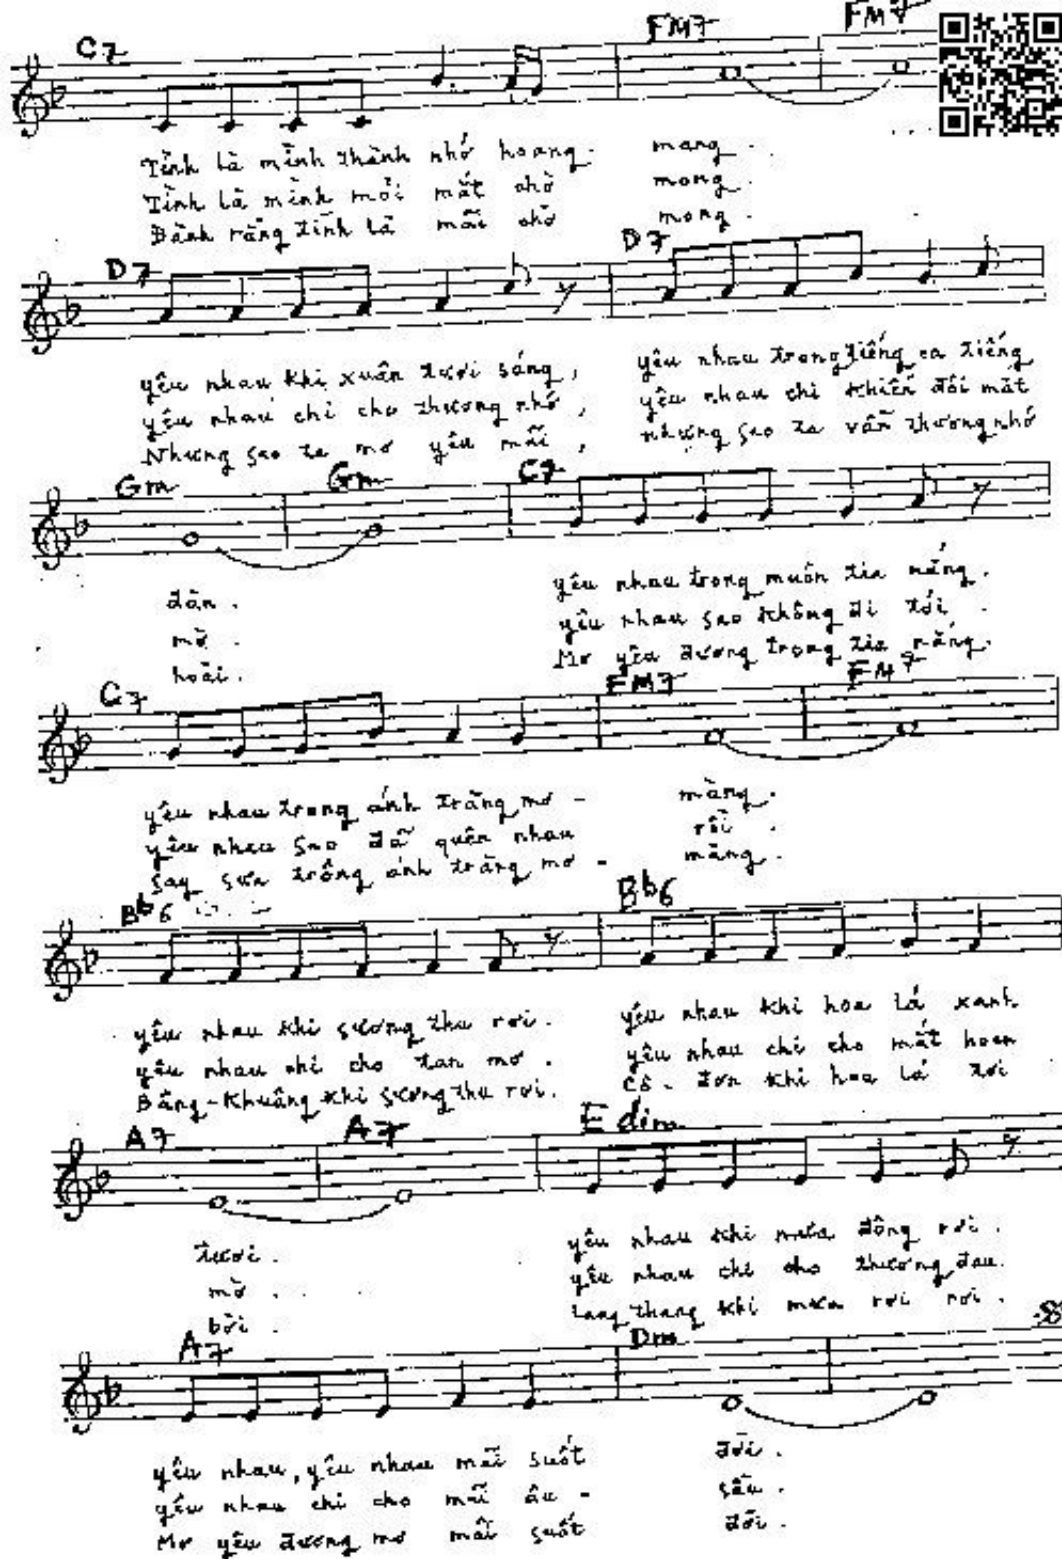 C7 FM7 FM7
Tình là mình thành nhớ hoang mang.
Tình là mình mỏi mắt chờ mong.
Đành rằng tình là mãi chờ mong.
D7 D7
yêu nhau khi xuân tươi sáng, yêu nhau trong tiếng ca tiếng
yêu nhau chi cho thương nhớ, yêu nhau chi khiến đôi mắt
Nhưng sao ta mơ yêu mãi, nhưng sao ta vẫn thương nhớ
Gm Gm C7
đàn. yêu nhau trong muôn tia nắng.
mờ. yêu nhau sao không đi tới.
hoài. Mơ yêu đương trong tia nắng.
C7 FM7 FM7
yêu nhau trong ánh trăng mơ - màng.
yêu nhau sao đã quên nhau rồi.
Say sưa trông ánh trăng mơ - màng.
Bb6 Bb6
yêu nhau khi sương thu rơi. yêu nhau khi hoa lá xanh
yêu nhau chi cho tan mơ. yêu nhau chi cho mắt hoen
Bâng-Khuâng khi sương thu rơi. Cô-đơn khi hoa lá tơi
A7 A7 Edim
tươi. yêu nhau khi mưa đông rơi.
mờ. yêu nhau chi cho thương đau.
bời. Lang thang khi mưa rơi rơi.
A7 Dm
yêu nhau, yêu nhau mãi suốt đời.
yêu nhau chi cho mãi âu - sầu.
Mơ yêu đương mơ mãi suốt đời.